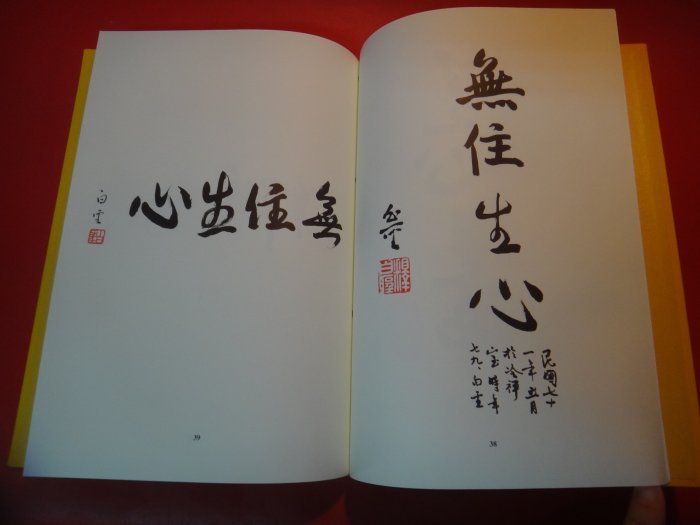 無住生心
民國七十
一年五月
於冷禪
室時年
七九、白雲
38
無住生心
白雲
39